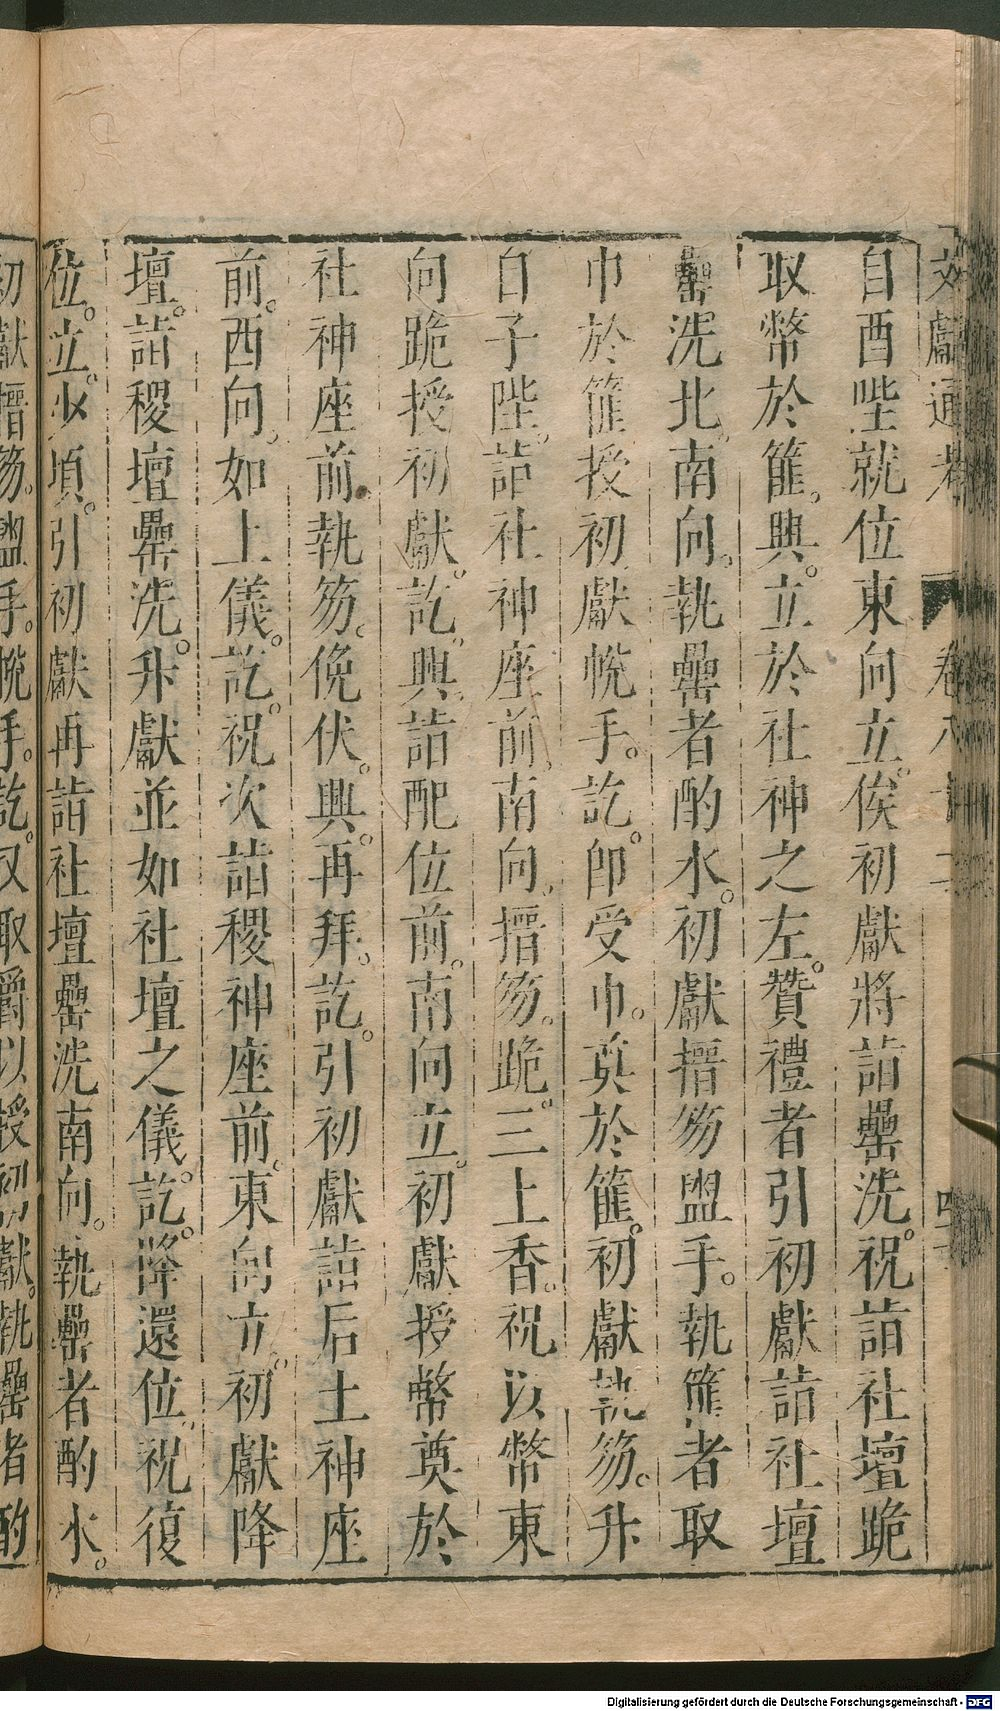 文獻通考 卷八十二 四十
自酉陛就位東向立。俟初獻將詣罍洗。祝詣社壇跪
取幣於篚。興。立於社神之左。贊禮者引初獻詣社壇
罍洗北。南向。執罍者酌水。初獻搢笏盥手。執篚者取
巾於篚授初獻帨手。訖。即受巾。奠於篚。初獻執笏。升
自子陛。詣社神座前南向。搢笏。跪。三上香。祝以幣東
向跪授初獻。訖。興。詣配位前。南向立。初獻授幣奠於
社神座前。執笏。俛伏。興。再拜。訖。引初獻詣后土神座
前。西向。如上儀。訖。祝次詣稷神座前。東向立。初獻降
壇。詣稷壇罍洗。升獻並如社壇之儀。訖。降還位。祝復
位。立。少頃。引初獻再詣社壇罍洗南向。執罍者酌水。
初獻搢笏。盥手。帨手。訖。又取爵以授初獻。執罍者酌
Digitalisierung gefördert durch die Deutsche Forschungsgemeinschaft - DFG